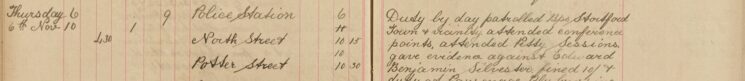 Thursday 6 9 Police Station 6 Duty by day patrolled Bps Stortford
6th Nov. 10 1 11 Town & vicinity attended conference
4.30 North Street 10 15 points, attended Petty Sessions,
10 gave evidence against Edward
Potter Street 10 30 Benjamin Silvester fined 10/4